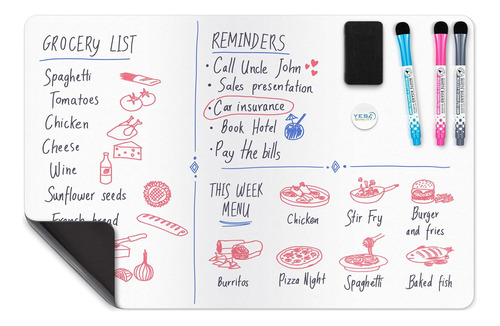 GROCERY LIST
Spaghetti
Tomatoes
Chicken
Cheese
Wine
Sunflower seeds
French bread
REMINDERS
• Call Uncle John
• Sales presentation
• Car insurance
• Book Hotel
• Pay the bills
YEBA
THIS WEEK
MENU
Chicken
Stir Fry
Burger
and fries
Burritos
Pizza Night
Spaghetti
Baked fish